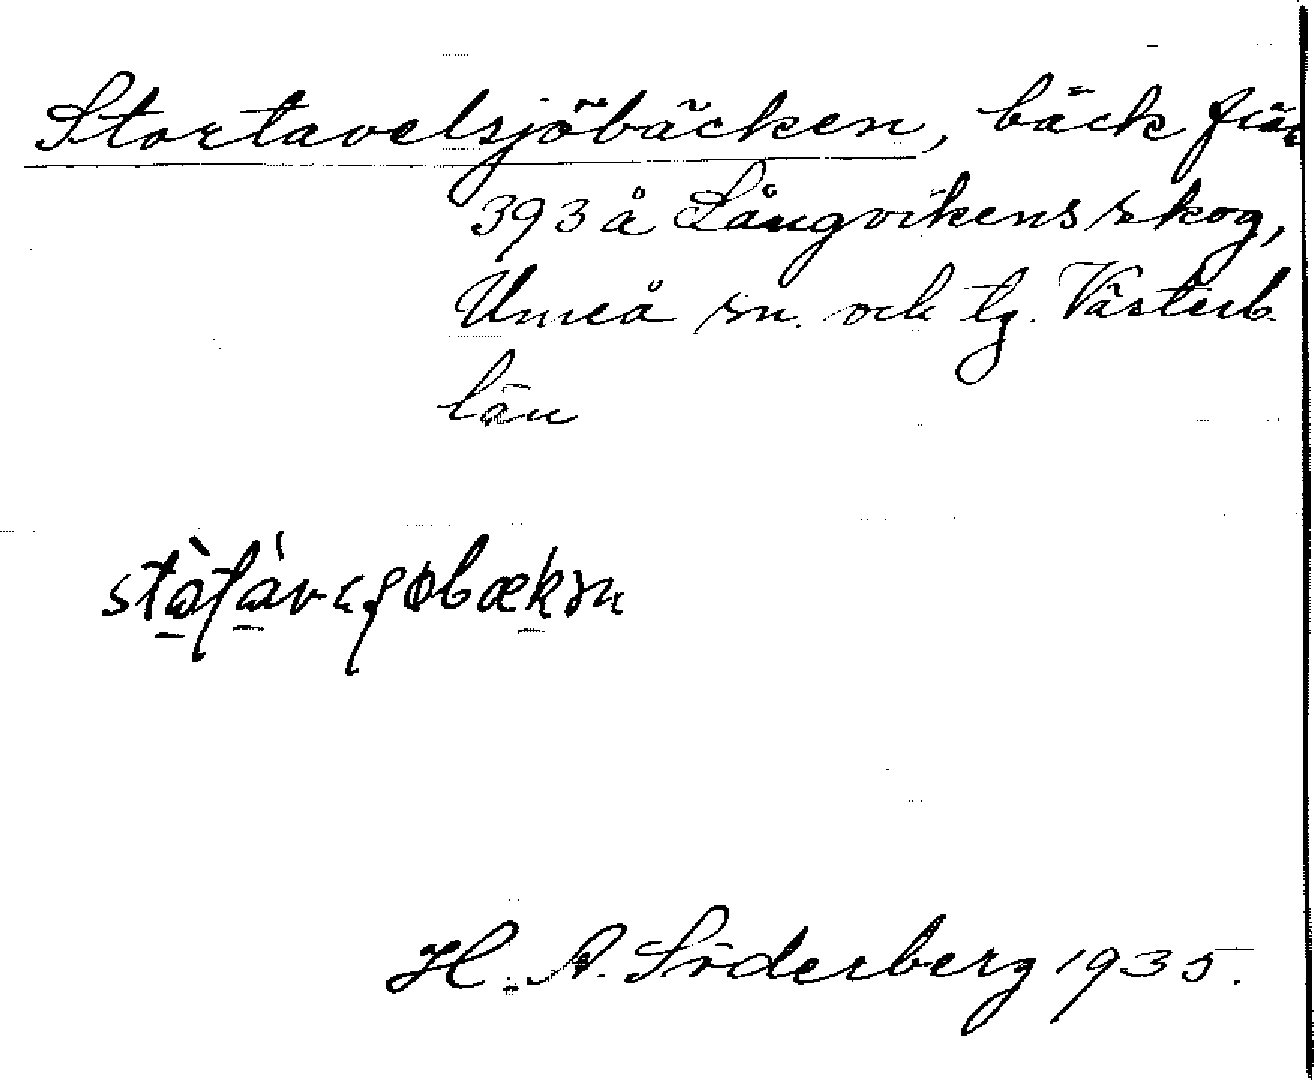 Stortavelsjöbäcken, bäck från
393 å Långvikens skog,
Umeå sn. och tg. Västerb.
län
H. A. Söderberg 1935.